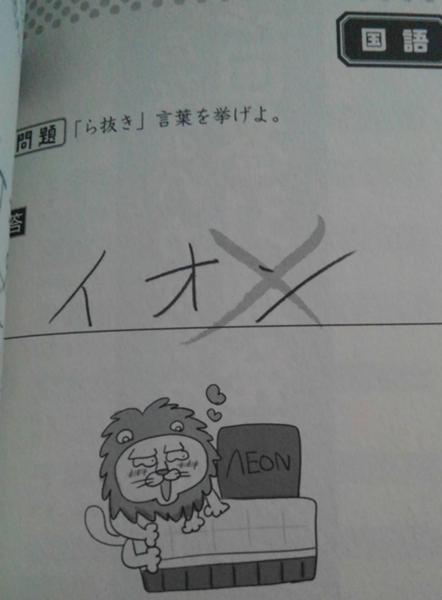 国語
問題 「ら抜き」言葉を挙げよ。
答
イオン
ΛEON